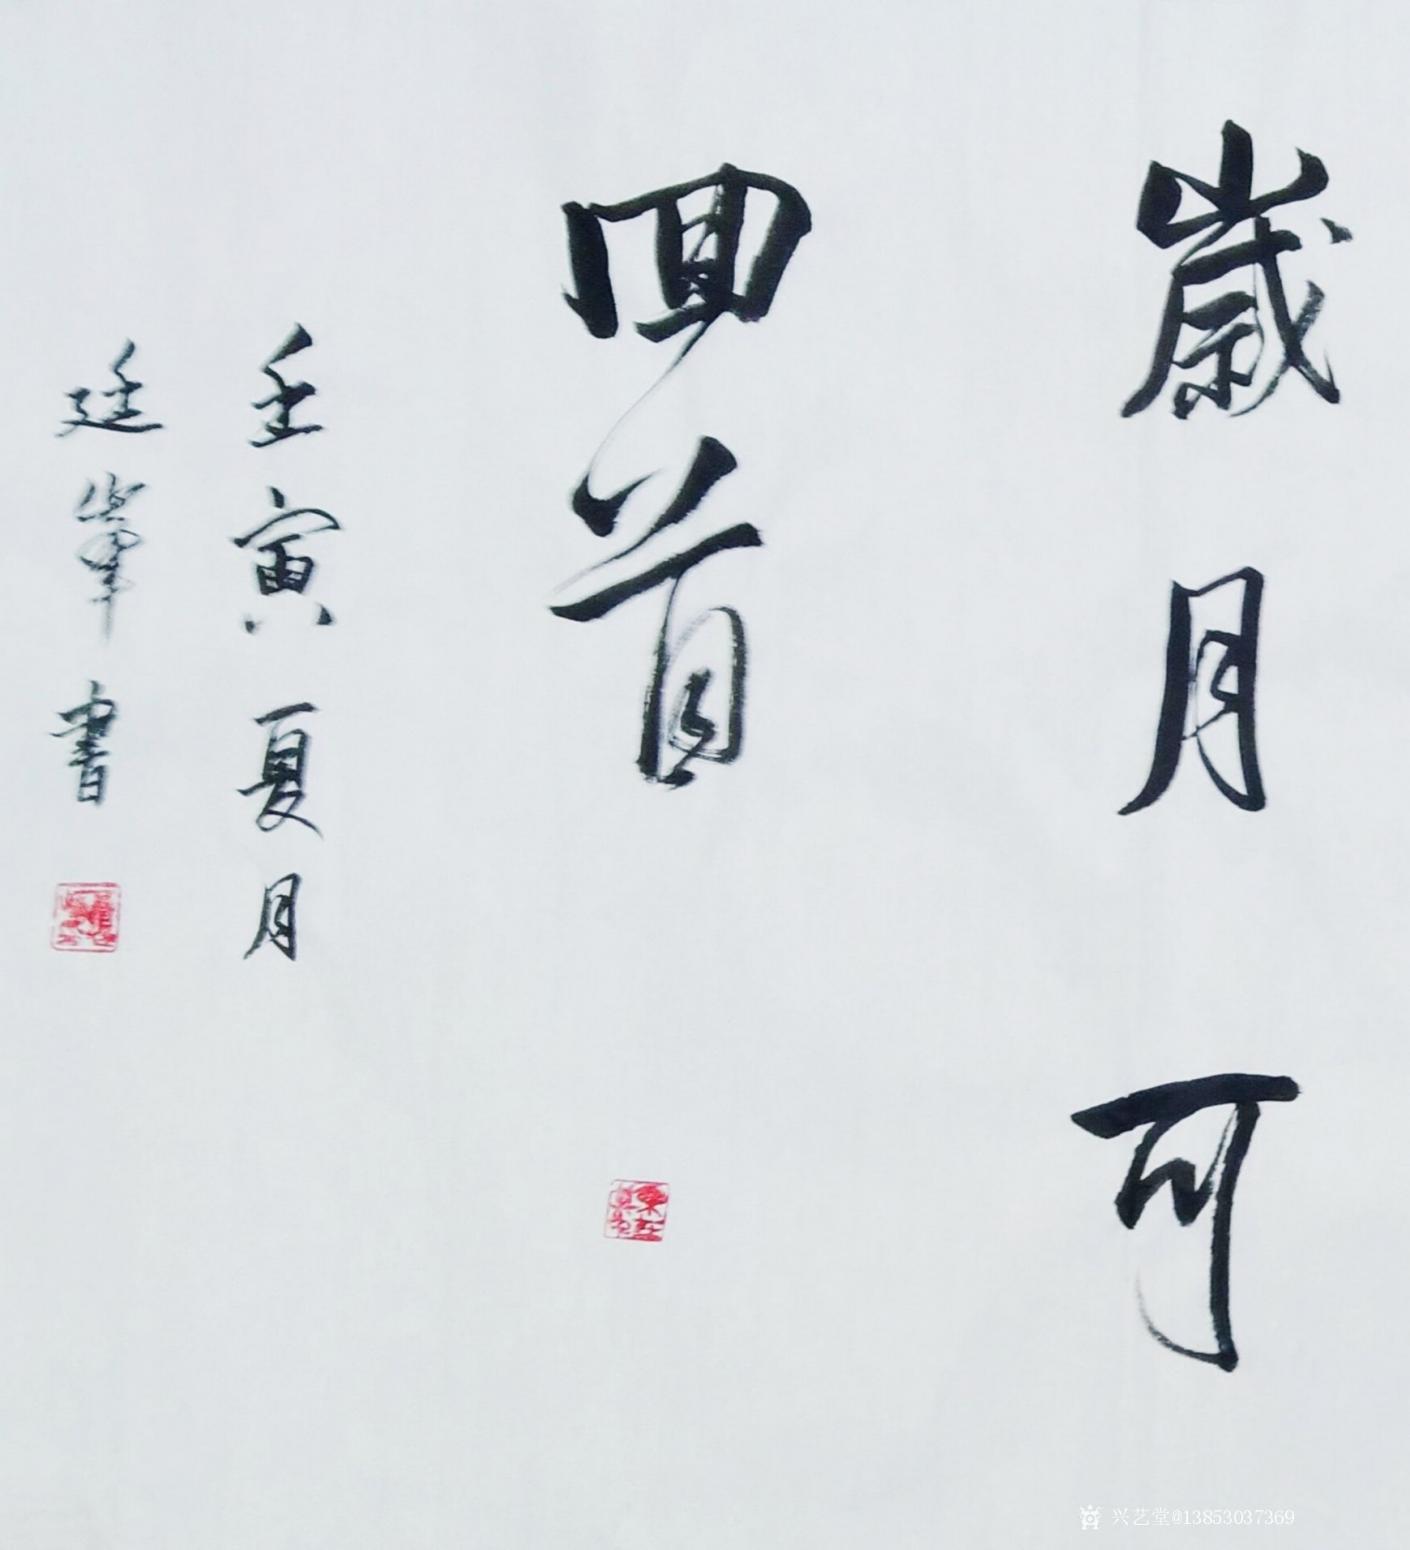 歲月可
回首
壬寅夏月
廷峯書
兴艺堂@13853037369